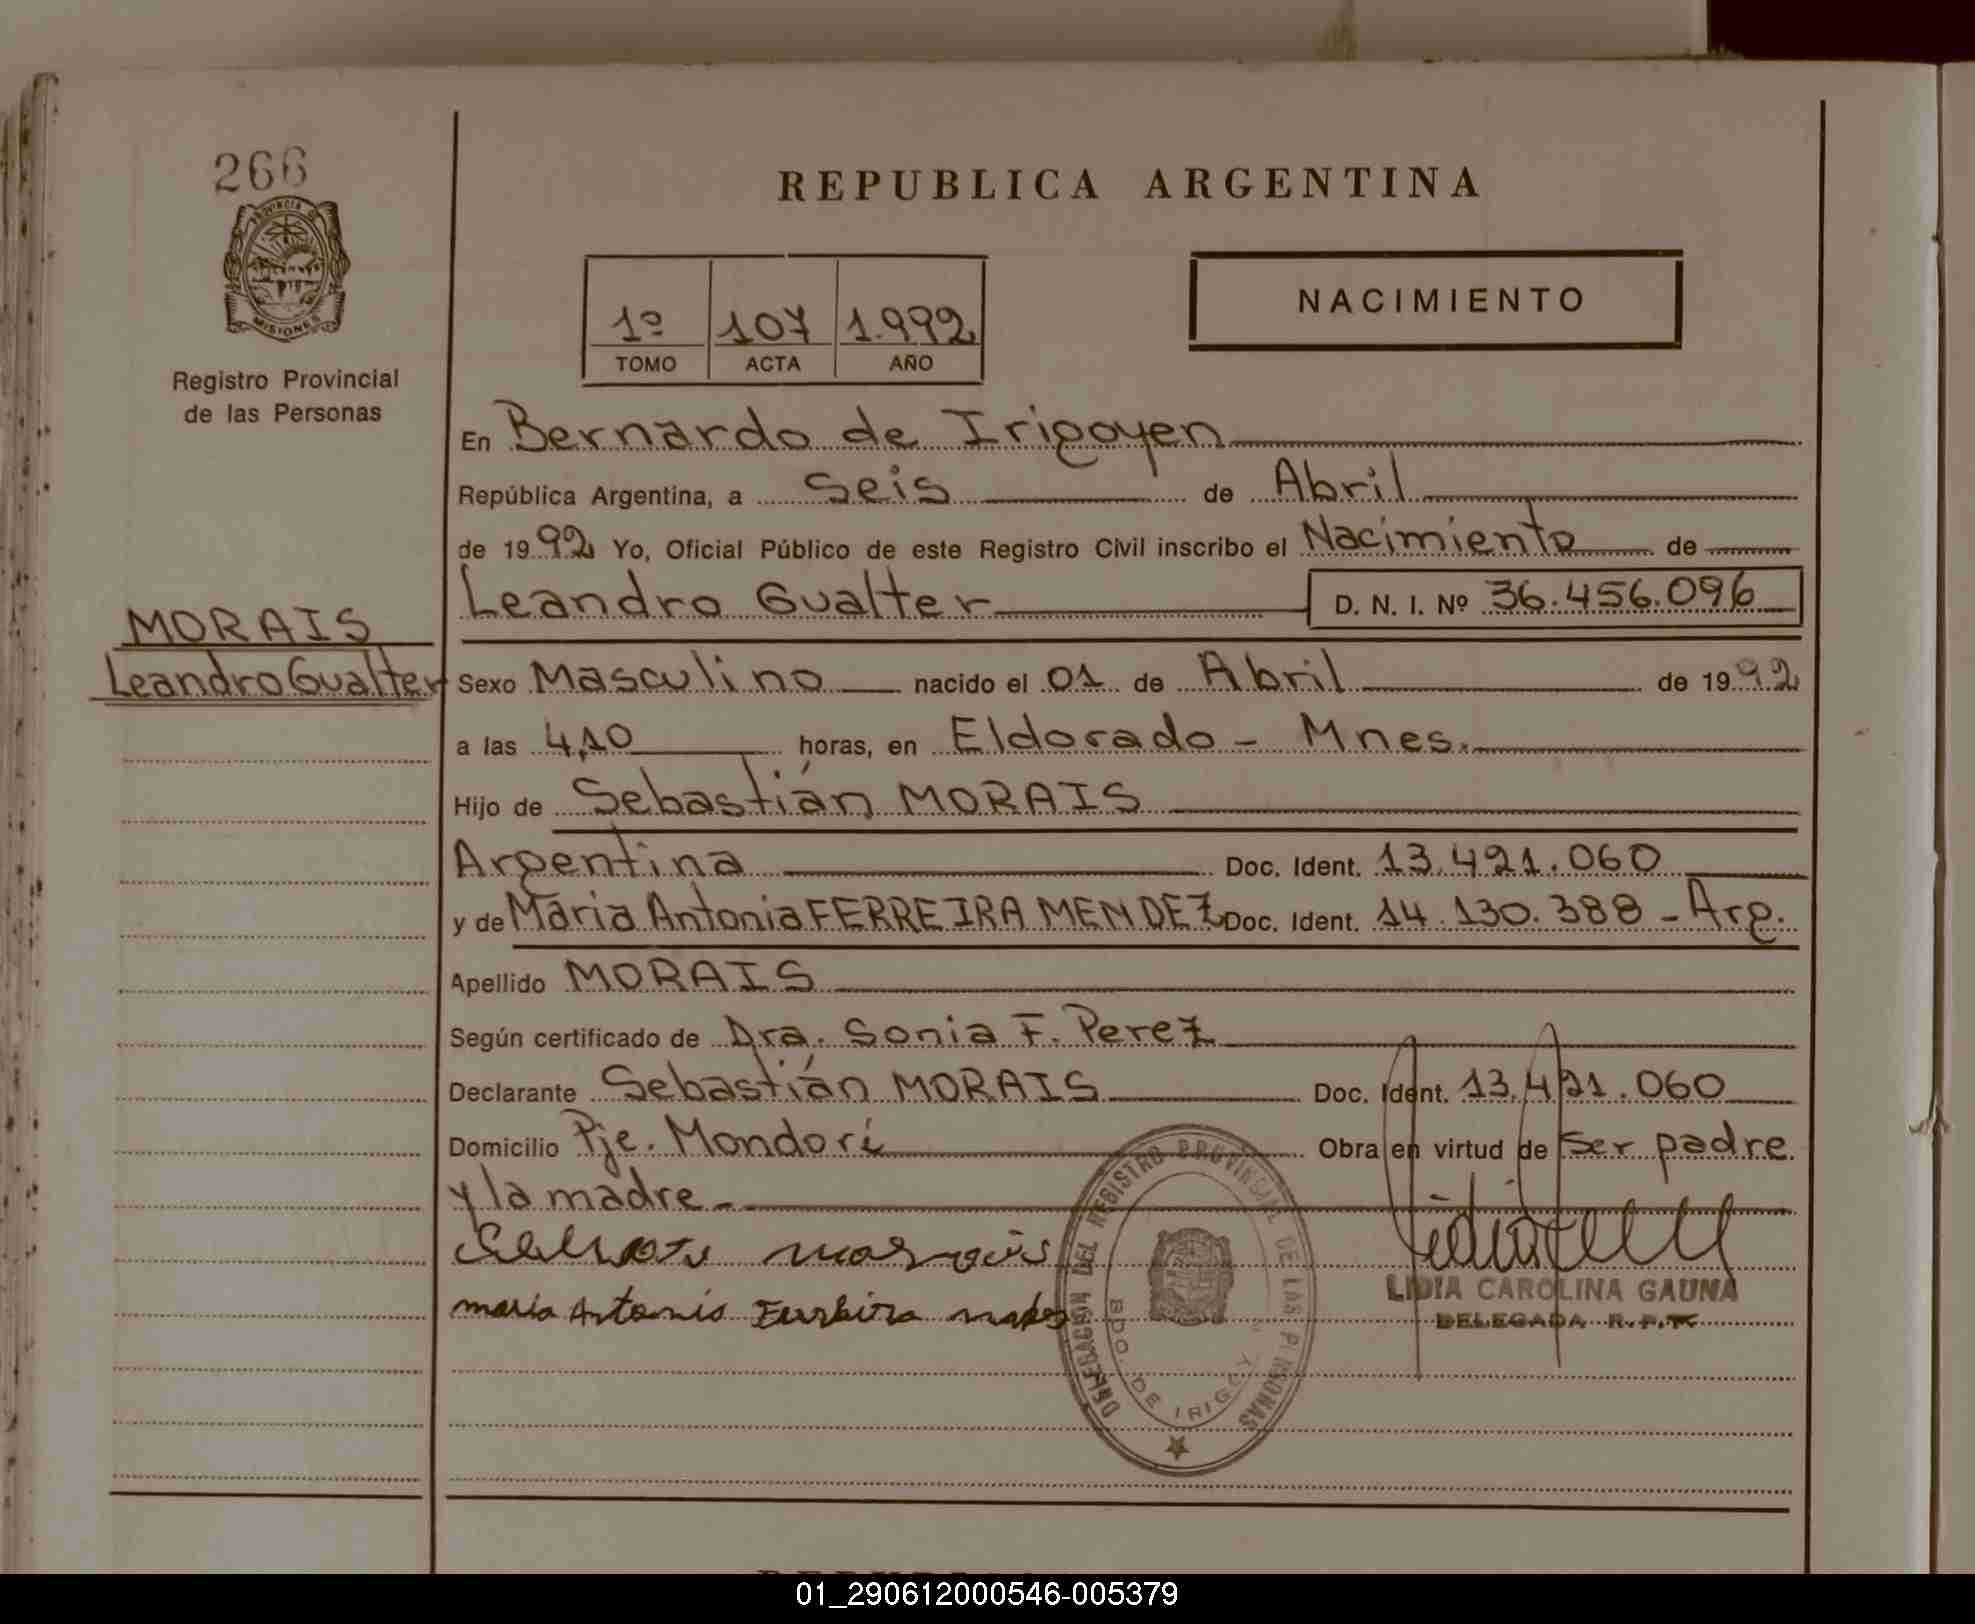 266
PROVINCIA DE
MISIONES
Registro Provincial
de las Personas
MORAIS
Leandro Gualter
REPUBLICA ARGENTINA
1º 107 1.992
TOMO ACTA AÑO
NACIMIENTO
En Bernardo de Irigoyen
República Argentina, a Seis de Abril
de 1992 Yo, Oficial Público de este Registro Civil inscribo el Nacimiento de
Leandro Gualter D. N. I. Nº 36.456.096
Sexo Masculino nacido el 01 de Abril de 1992
a las 4,10 horas, en Eldorado - Mnes.
Hijo de Sebastián MORAIS
Argentina Doc. Ident. 13.421.060
y de Maria Antonia FERREIRA MENDEZ Doc. Ident. 14.130.388 - Arg.
Apellido MORAIS
Según certificado de Dra. Sonia F. Perez
Declarante Sebastián MORAIS Doc. Ident. 13.421.060
Domicilio Pje. Mondorí Obra en virtud de Ser padre
y la madre.
maria Antonia
DELEGACION DEL REGISTRO PROVINCIAL DE LAS PERSONAS
BDO. DE IRIGOY.
LIDIA CAROLINA GAUNA
DELEGADA R. P. P.
01_290612000546-005379